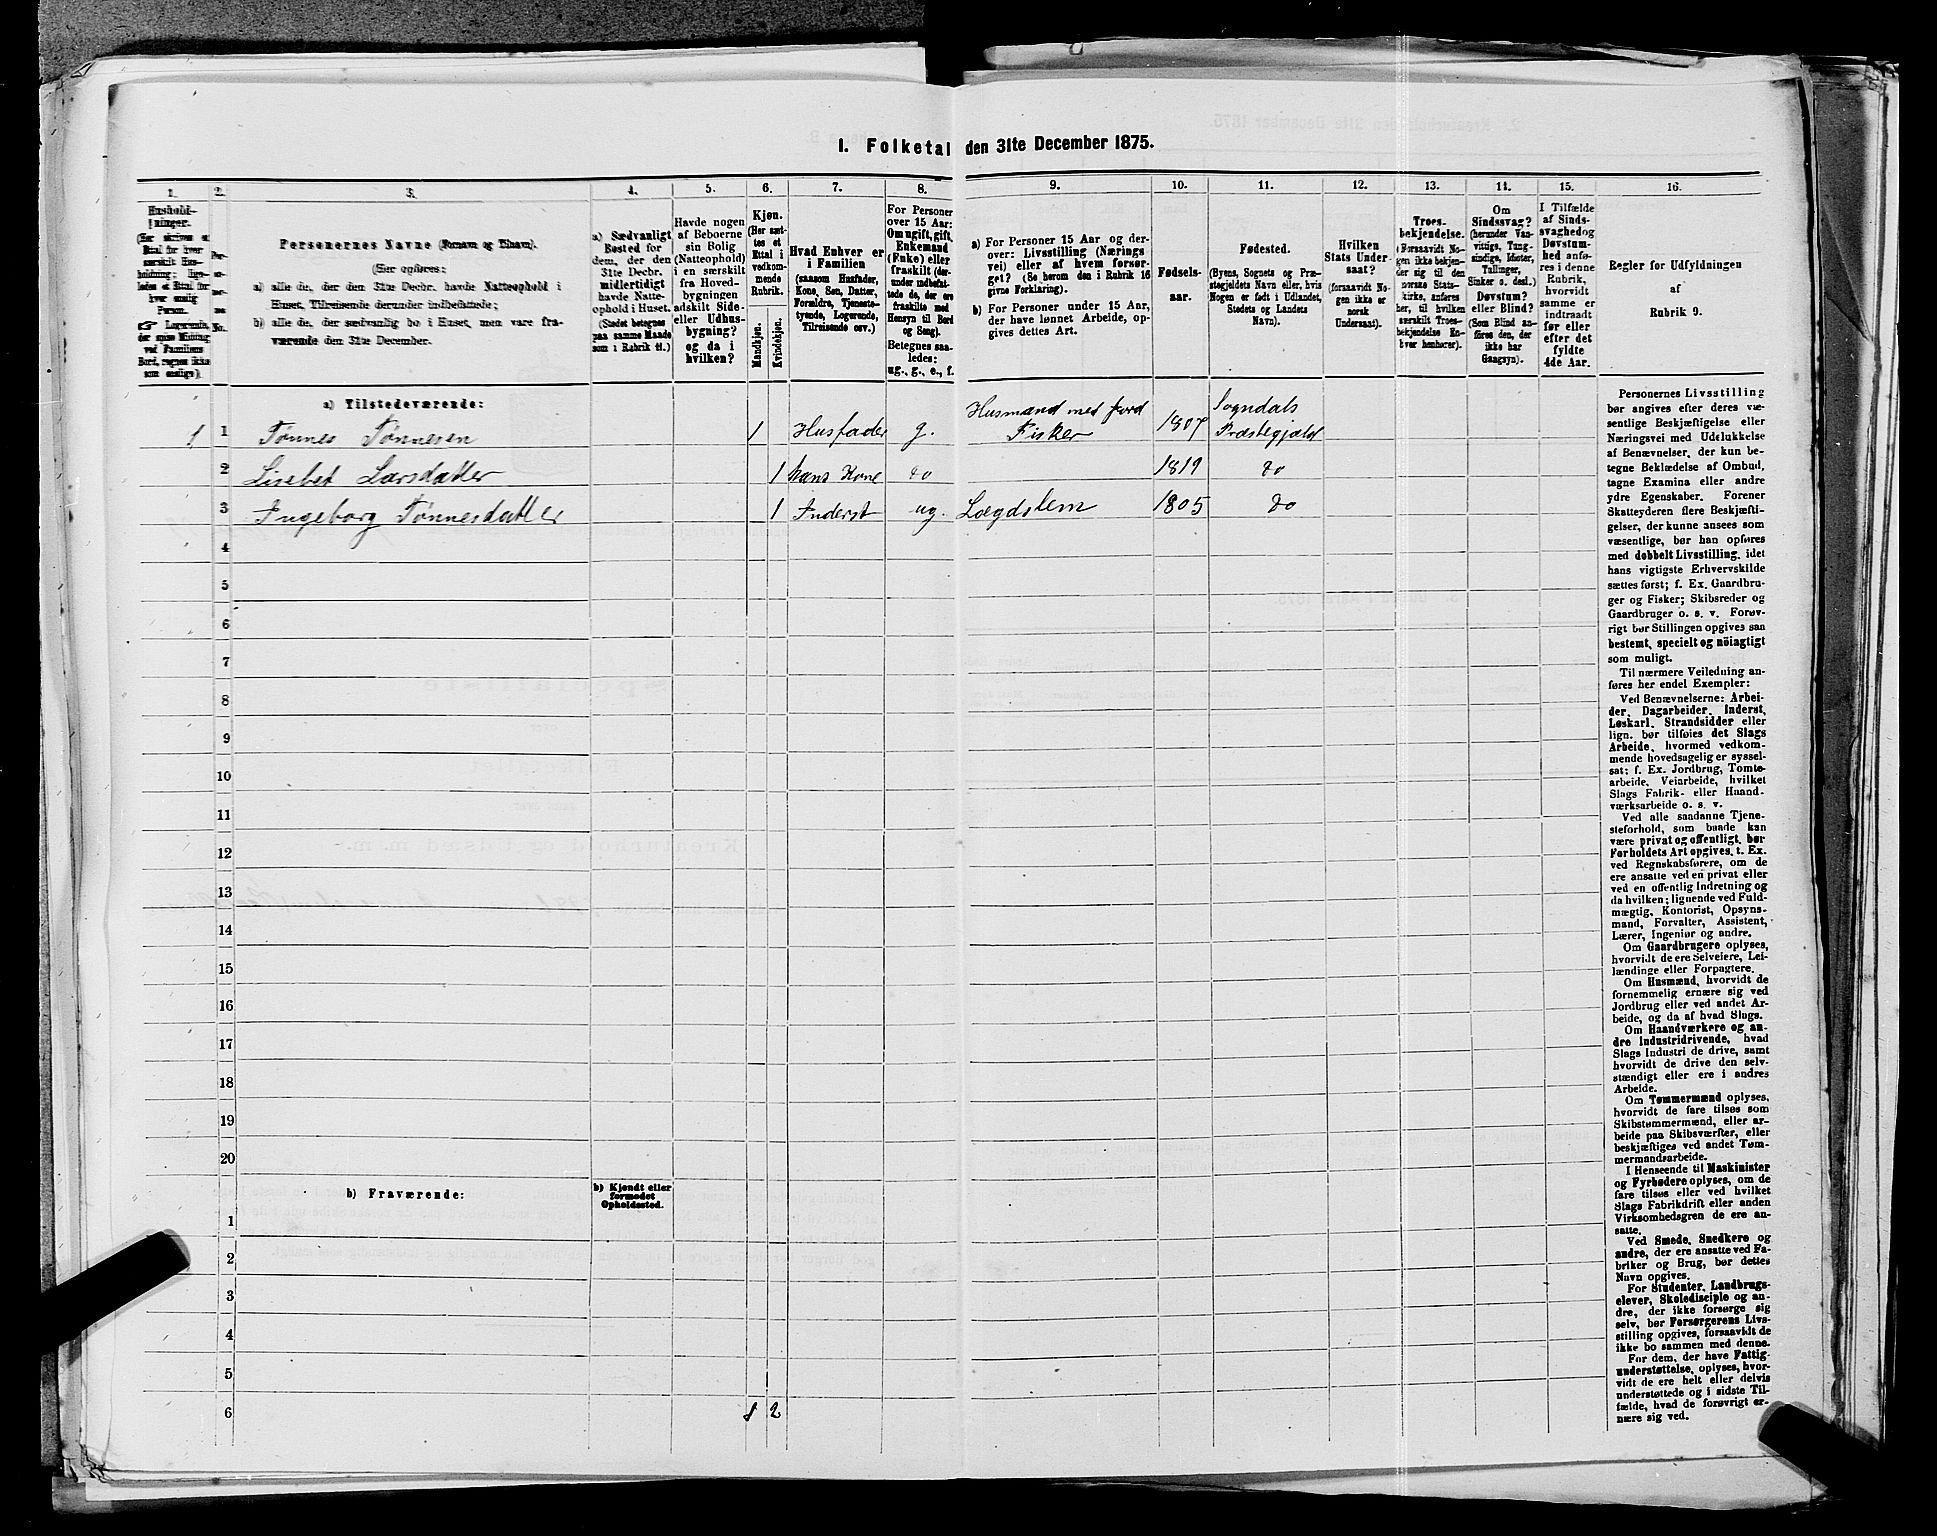 I. Folketal den 31te December 1875.
1. 2. 3. 4. 5. 6. 7. 8. 9. 10. 11. 12. 13. 14. 15. 16.
Hushold-
ninger.
(Her skrives et
Ettal for hver
særskilt Hus-
holdning; lige-
ledes et Ettal for
hver enslig
Person.
☞ Logerende,
der spise Middag
ved Familiens
Bord, regnes ikke
som enslige).
Per-
soner-
nes
No.
Personernes Navne (Fornavn og Tilnavn).
(Her opføres:
a) alle de, der den 31te Decbr. havde Natteophold i
Huset, Tilreisende derunder indbefattede;
b) alle de, der sædvanlig bo i Huset, men vare fra-
værende den 31te December.
a) Sædvanligt
Bosted for
dem, der den
31te Decbr.
midlertidigt
havde Natte-
ophold i Huset.
(Stedet betegnes
paa samme Maade
som i Rubrik 11.)
Havde nogen
af Beboerne
sin Bolig
(Natteophold)
i en særskilt
fra Hoved-
bygningen
adskilt Side-
eller Udhus-
bygning?
og da i
hvilken?
Kjøn.
(Her sæt-
tes et
Ettal i
vedkom-
mende
Rubrik.
Mandkjøn.
Kvindekjøn.
Hvad Enhver er
i Familien
(saasom Husfader,
Kone, Søn, Datter,
Forældre, Tjeneste-
tyende, Logerende,
Tilreisende osv.)
For Personer
over 15 Aar:
Om ugift, gift,
Enkemand
(Enke) eller
fraskilt (der-
under indbefat-
tede de, der ere
fraskilte med
Hensyn til Bord
og Seng).
Betegnes saa-
ledes:
ug., g., e., f.
a) For Personer 15 Aar og der-
over: Livsstilling (Nærings
vei) eller af hvem forsør-
get? (Se herom den i Rubrik 16
givne Forklaring).
b) For Personer under 15 Aar,
der have lønnet Arbeide, op-
gives dettes Art.
Fødsels-
aar.
Fødested.
(Byens, Sognets og Præ-
stegjeldets Navn eller, hvis
Nogen er født i Udlandet,
Stedets og Landets
Navn).
Hvilken
Stats Under-
saat?
(forsaavidt No-
gen ikke er
norsk
Undersaat).
Troes-
bekjendelse.
(Forsaavidt No-
gen ikke bekjen-
der sig til den
norske Stats-
kirke, anføres
her, til hvilken
særskilt Troes-
bekjendelse En-
hver henhører).
Om
Sindssvag?
(herunder Van-
vittige, Tung-
sindige, Idioter,
Tullinger,
Sinker o. desl.)
Døvstum?
eller Blind?
(Som Blind an-
føres den, der
ikke har
Gangsyn).
I Tilfælde
af Sinds-
svaghed og
Døvstum-
hed anfø-
res i denne
Rubrik,
hvorvidt
samme er
indtraadt
før eller
efter det
fyldte
4de Aar.
Regler for Udfyldningen
af
Rubrik 9.
a) Tilstedeværende:
1 1 Tønnes Tønnesen 1 Husfader g. Husmand med Jord Fisker 1807 Sogndals Præstegjæld
2 Lisebet Larsdatter 1 hans Kone do 1819 do
3 Ingeborg Tønnesdatter 1 Inderst ug. Lægdslem 1805 do
4
5
6
7
8
9
10
11
12
13
14
15
16
17
18
19
20
b) Fraværende:
b) Kjendt eller
formodet
Opholdssted.
1
2
3
4
5
6 1 2
Personernes Livsstilling
bør angives efter deres væ-
sentlige Beskjæftigelse eller
Næringsvei med Udelukkelse
af Benævnelser, der kun be-
tegne Beklædelse af Ombud,
tagne Examina eller andre
ydre Egenskaber. Forener
Skatteyderen flere Beskjæfti-
gelser, der kunne ansees som
væsentlige, bør han opføres
med dobbelt Livsstilling, idet
hans vigtigste Erhvervskilde
sættes først; f. Ex. Gaardbru-
ger og Fisker; Skibsreder og
Gaardbruger o. s. v. Forøv-
rigt bør Stillingen opgives saa
bestemt, specielt og nöiagtigt
som muligt.
Til nærmere Veiledning an-
føres her endel Exempler:
Ved Benævnelserne: Arbei-
der, Dagarbeider, Inderst,
Løskarl, Strandsidder eller
lign. bør tilføies det Slags
Arbeide, hvormed vedkom-
mende hovedsagelig er syssel-
sat; f. Ex. Jordbrug, Tomte-
arbeide, Veiarbeide, hvilket
Slags Fabrik- eller Haand-
værksarbeide o. s. v.
Ved alle saadanne Tjene-
steforhold, som baade kan
være privat og offentligt, bør
Forholdets Art opgives, t. Ex.
ved Regnskabsførere, om de
ere ansatte ved en privat eller
ved en offentlig Indretning og
da hvilken; lignende ved Fuld-
mægtig, Kontorist, Opsyns-
mand, Forvalter, Assistent,
Lærer, Ingeniør og andre.
Om Gaardbrugere oplyses,
hvorvidt de ere Selveiere, Lei-
lændinge eller Forpagtere.
Om Husmænd, hvorvidt de
fornemmelig ernære sig ved
Jordbrug eller ved andet Ar-
beide, og da af hvad Slags.
Om Haandværkere og an-
dre Industridrivende, hvad
Slags Industri de drive, samt
hvorvidt de drive den selv-
stændigt eller ere i andres
Arbeide.
Om Tømmermænd oplyses,
hvorvidt de fare tilsøs som
Skibstømmermænd, eller ar-
beide paa Skibsværfter, eller
beskjæftiges ved andet Tøm-
mermandsarbeide.
I Henseende til Maskinister
og Fyrbødere oplyses, om de
fare tilsøs eller ved hvilket
Slags Fabrikdrift eller anden
Virksomhedsgren de ere an-
satte.
Ved Smede, Snedkere og
andre, der ere ansatte ved Fa-
briker og Brug, bør dettes
Navn opgives.
For Studenter, Landbrugs-
elever, Skoledisciple og an-
dre, der ikke forsørge sig
selv, bør Forsørgerens Livs-
stilling opgives, forsaavidt de
ikke bo sammen med denne.
For dem, der have Fattig-
understøttelse, oplyses, hvor-
vidt de ere helt eller delvis
understøttede og i sidste Til-
fælde, hvad de forøvrigt er-
nære sig ved.